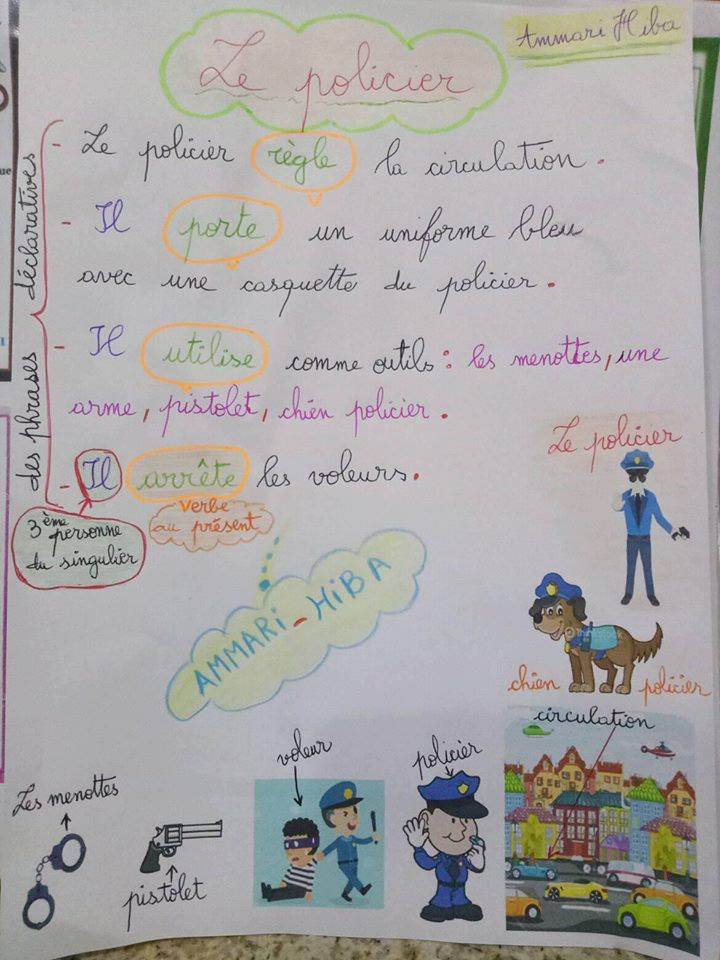 Ammari Hiba
Le policier
des phrases déclaratives
- Le policier règle la circulation.
- Il porte un uniforme bleu
avec une casquette du policier.
- Il utilise comme outils : les menottes, une
arme, pistolet, chien policier.
- Il arrête les voleurs.
3ème personne
du singulier
verbe
au présent
Le policier
AMMARI_HiBA
chien policier
circulation
voleur
policier
Les menottes
pistolet